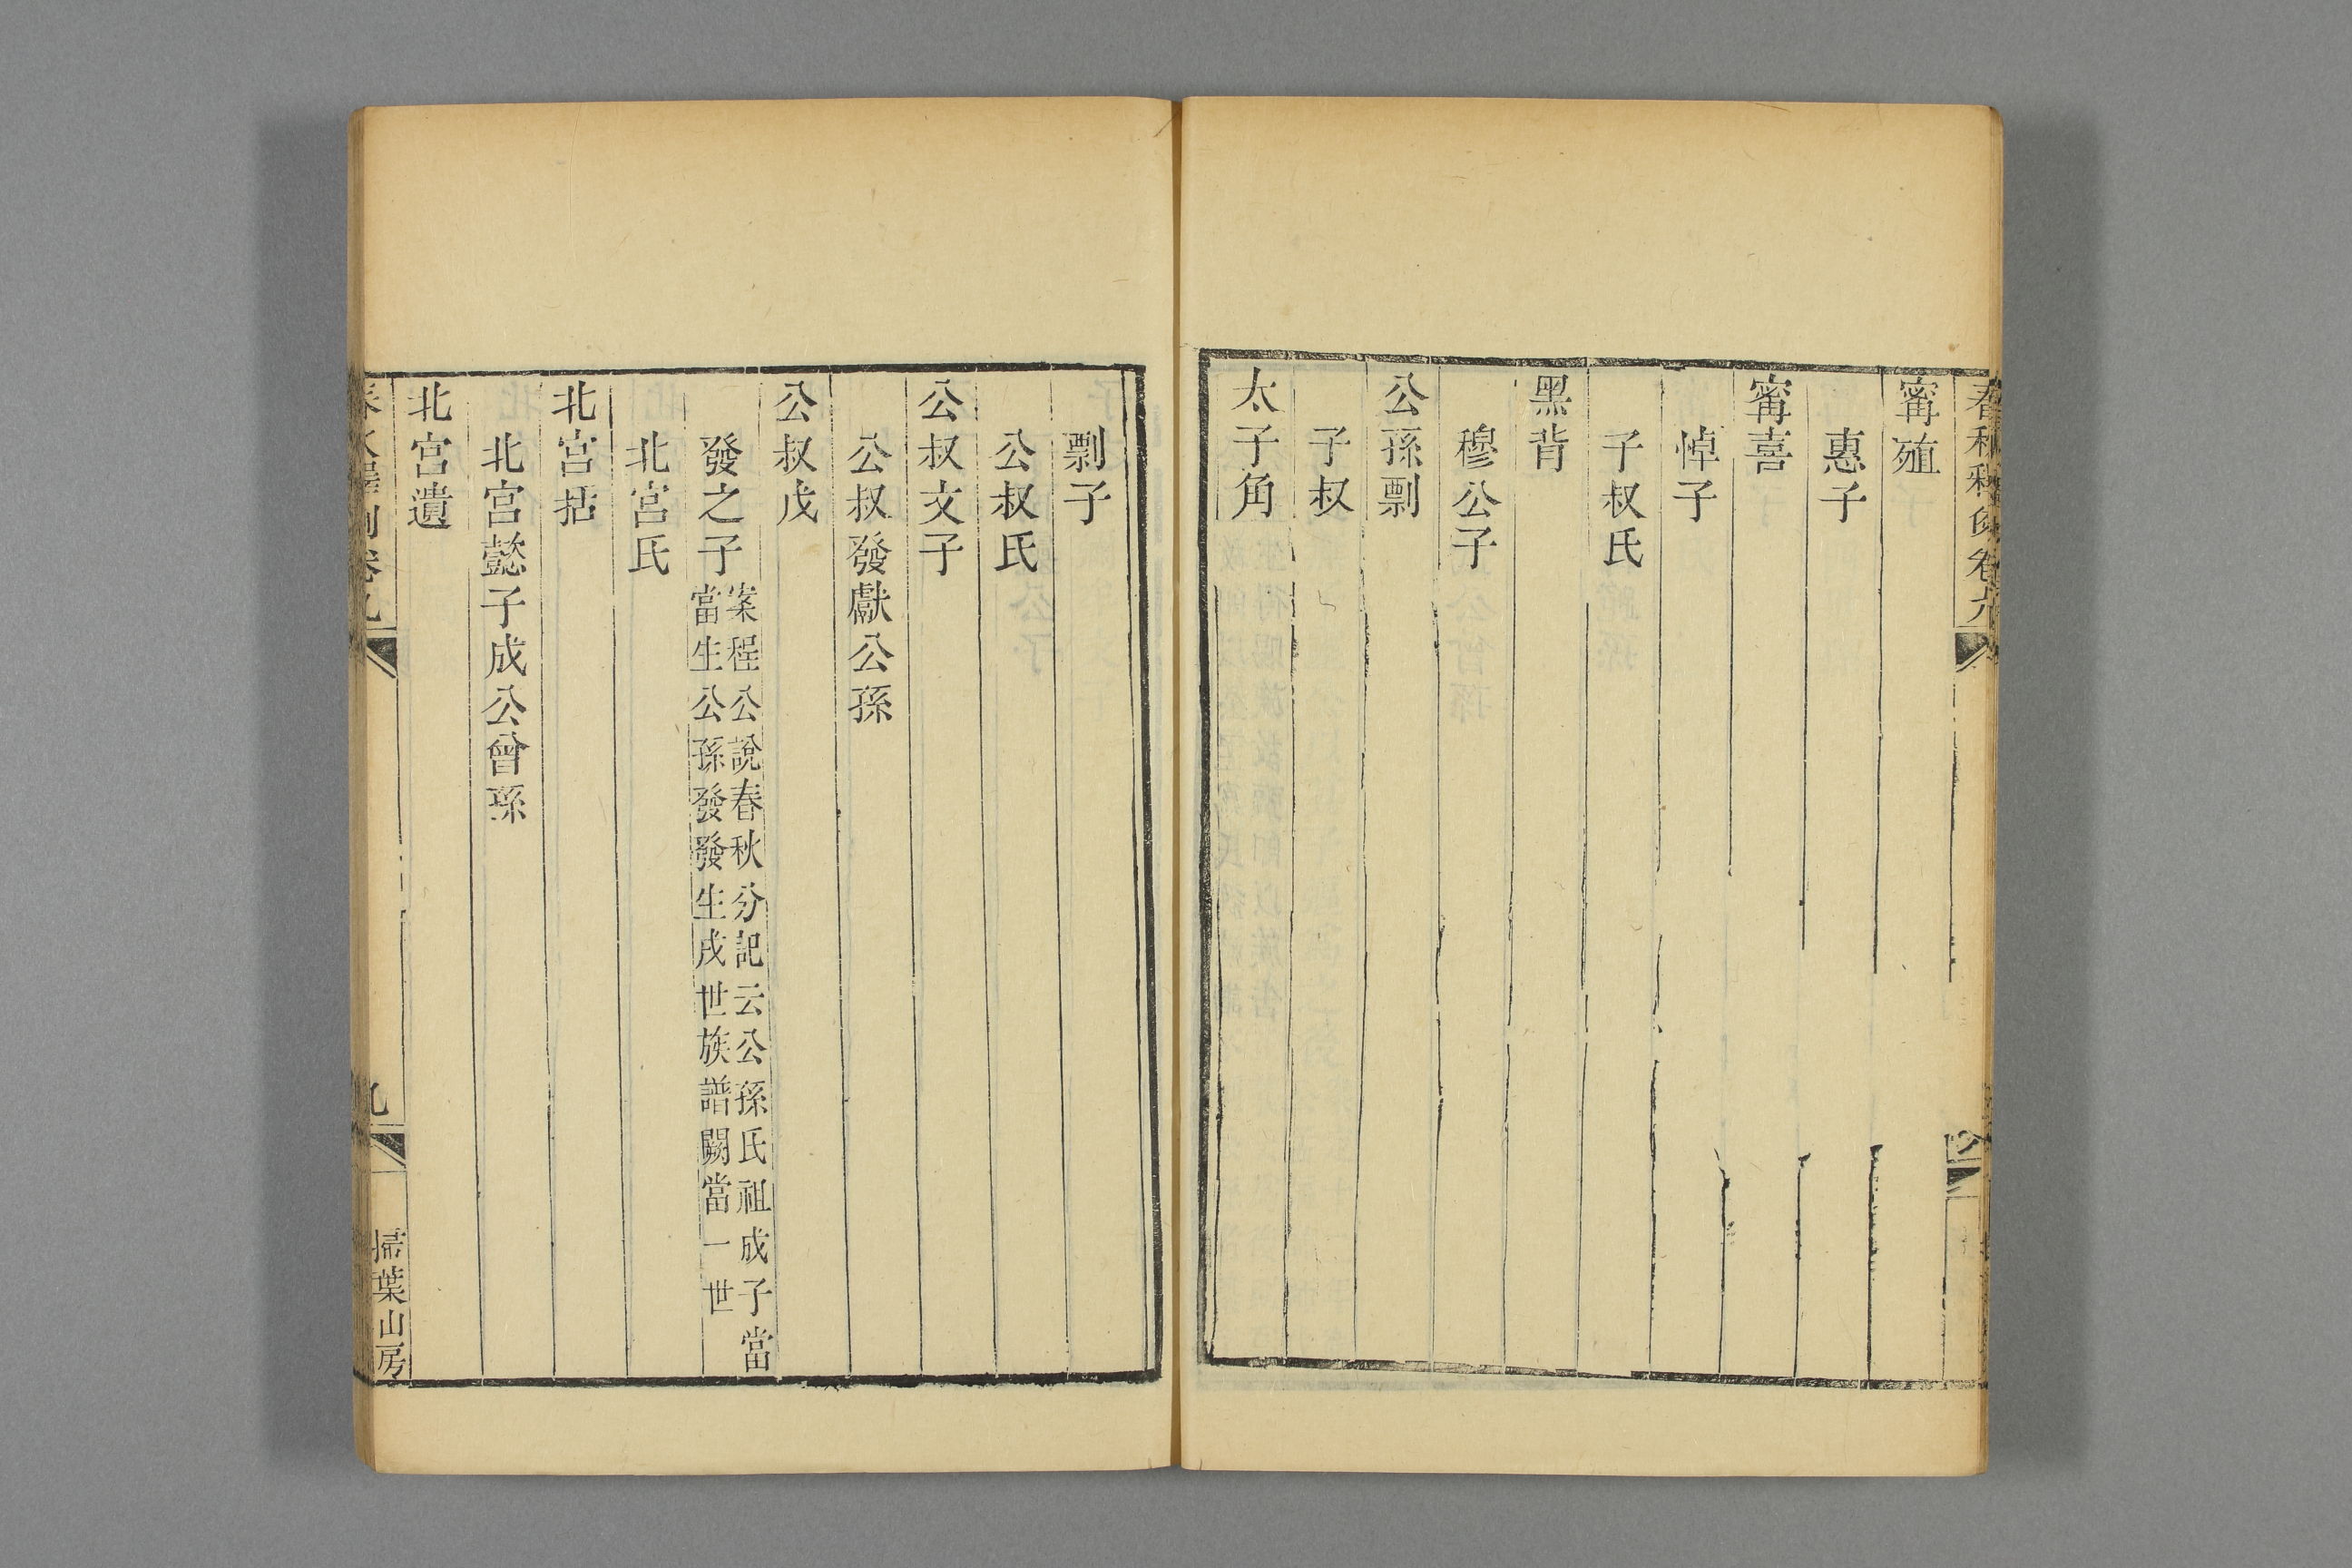 春秋釋例卷九
甯殖
惠子
甯喜
悼子
子叔氏
黑背
穆公子
公孫剽
子叔
太子角
剽子
公叔氏
公叔文子
公叔發獻公孫
公叔戊
發之子案程公說春秋分記云公孫氏祖成子當
當生公孫發發生戌世族譜闕當一世
北宮氏
北宮括
北宮懿子成公曾孫
北宮遺
春秋釋例卷九
九
掃葉山房